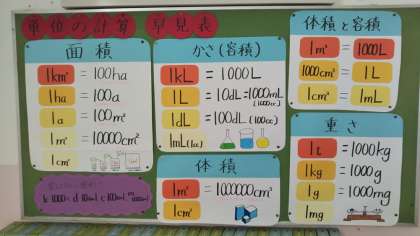 単位の計算 早見表
面積
1km² = 100ha
1ha = 100a
1a = 100m²
1m² = 10000cm²
1cm²
かさ(容積)
1kL = 1000L
1L = 10dL = 1000mL
(1000cc)
1dL = 100mL (100cc)
1mL (1cc)
体積
1m³ = 1000000cm³
1cm³
体積と容積
1m³ = 1000L
1000cm³ = 1L
1cm³ = 1mL
重さ
1t = 1000kg
1kg = 1000g
1g = 1000mg
1mg